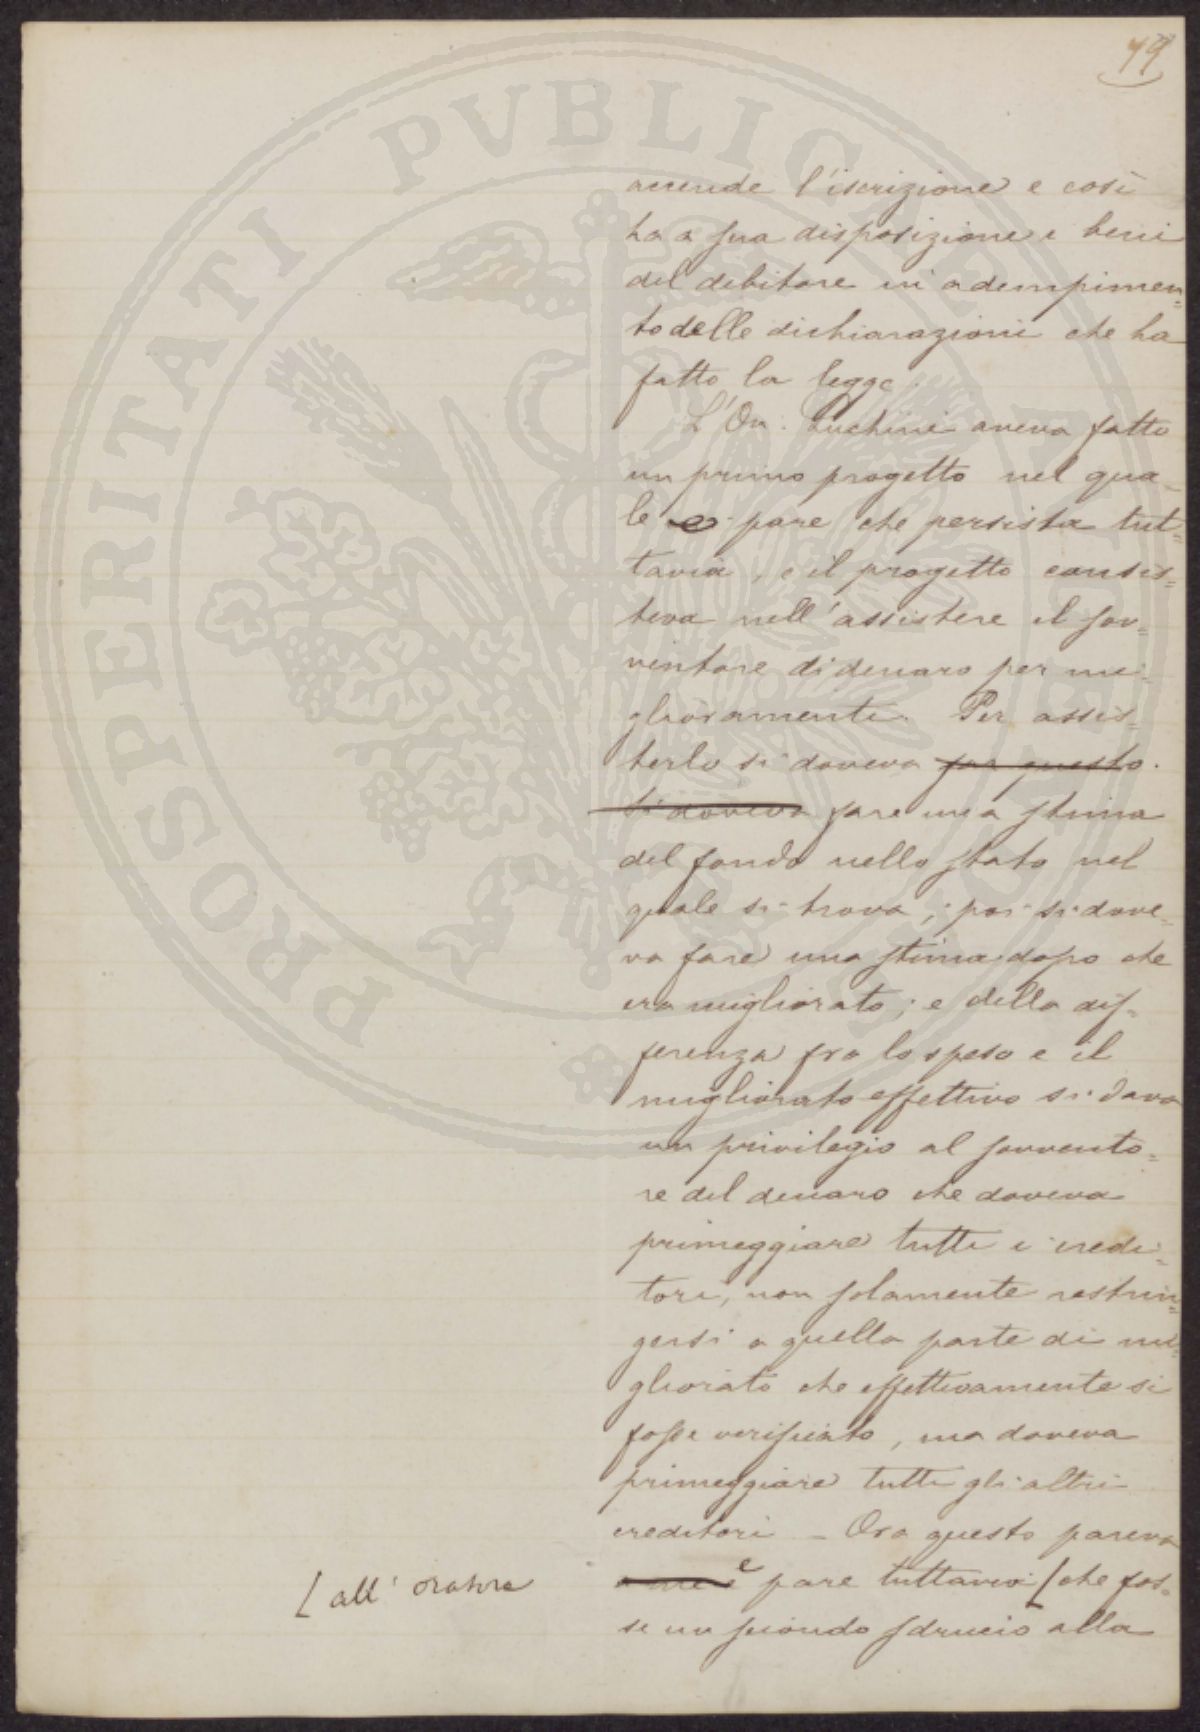 79
accende l'iscrizione e così
ha a sua disposizione i beni
del debitore in adempimen=
to delle dichiarazioni che ha
fatto la legge.
L'On. Luchini aveva fatto
un primo progetto nel qua=
le pare che persista tut=
tavia, e il progetto consis=
teva nell'assistere il sov=
ventore di denaro per mi=
glioramenti. Per assis=
terlo si doveva far questo.
si doveva fare una stima
del fondo nello stato nel
quale si trova, poi si dove=
va fare una stima dopo che
era migliorato; e della dif=
ferenza fra lo speso e il
migliorato effettivo si dava
un privilegio al sovvento=
re del denaro che doveva
primeggiare tutti i credi=
tori, non solamente restrin=
gersi a quella parte di mi=
gliorato che effettivamente si
fosse verificato, ma doveva
primeggiare tutti gli altri
creditori - Ora questo pareva
a me e pare tuttavia [che fos=
[all' oratore
se un sdrucio alla
PROSPERITATI PUBLICAE